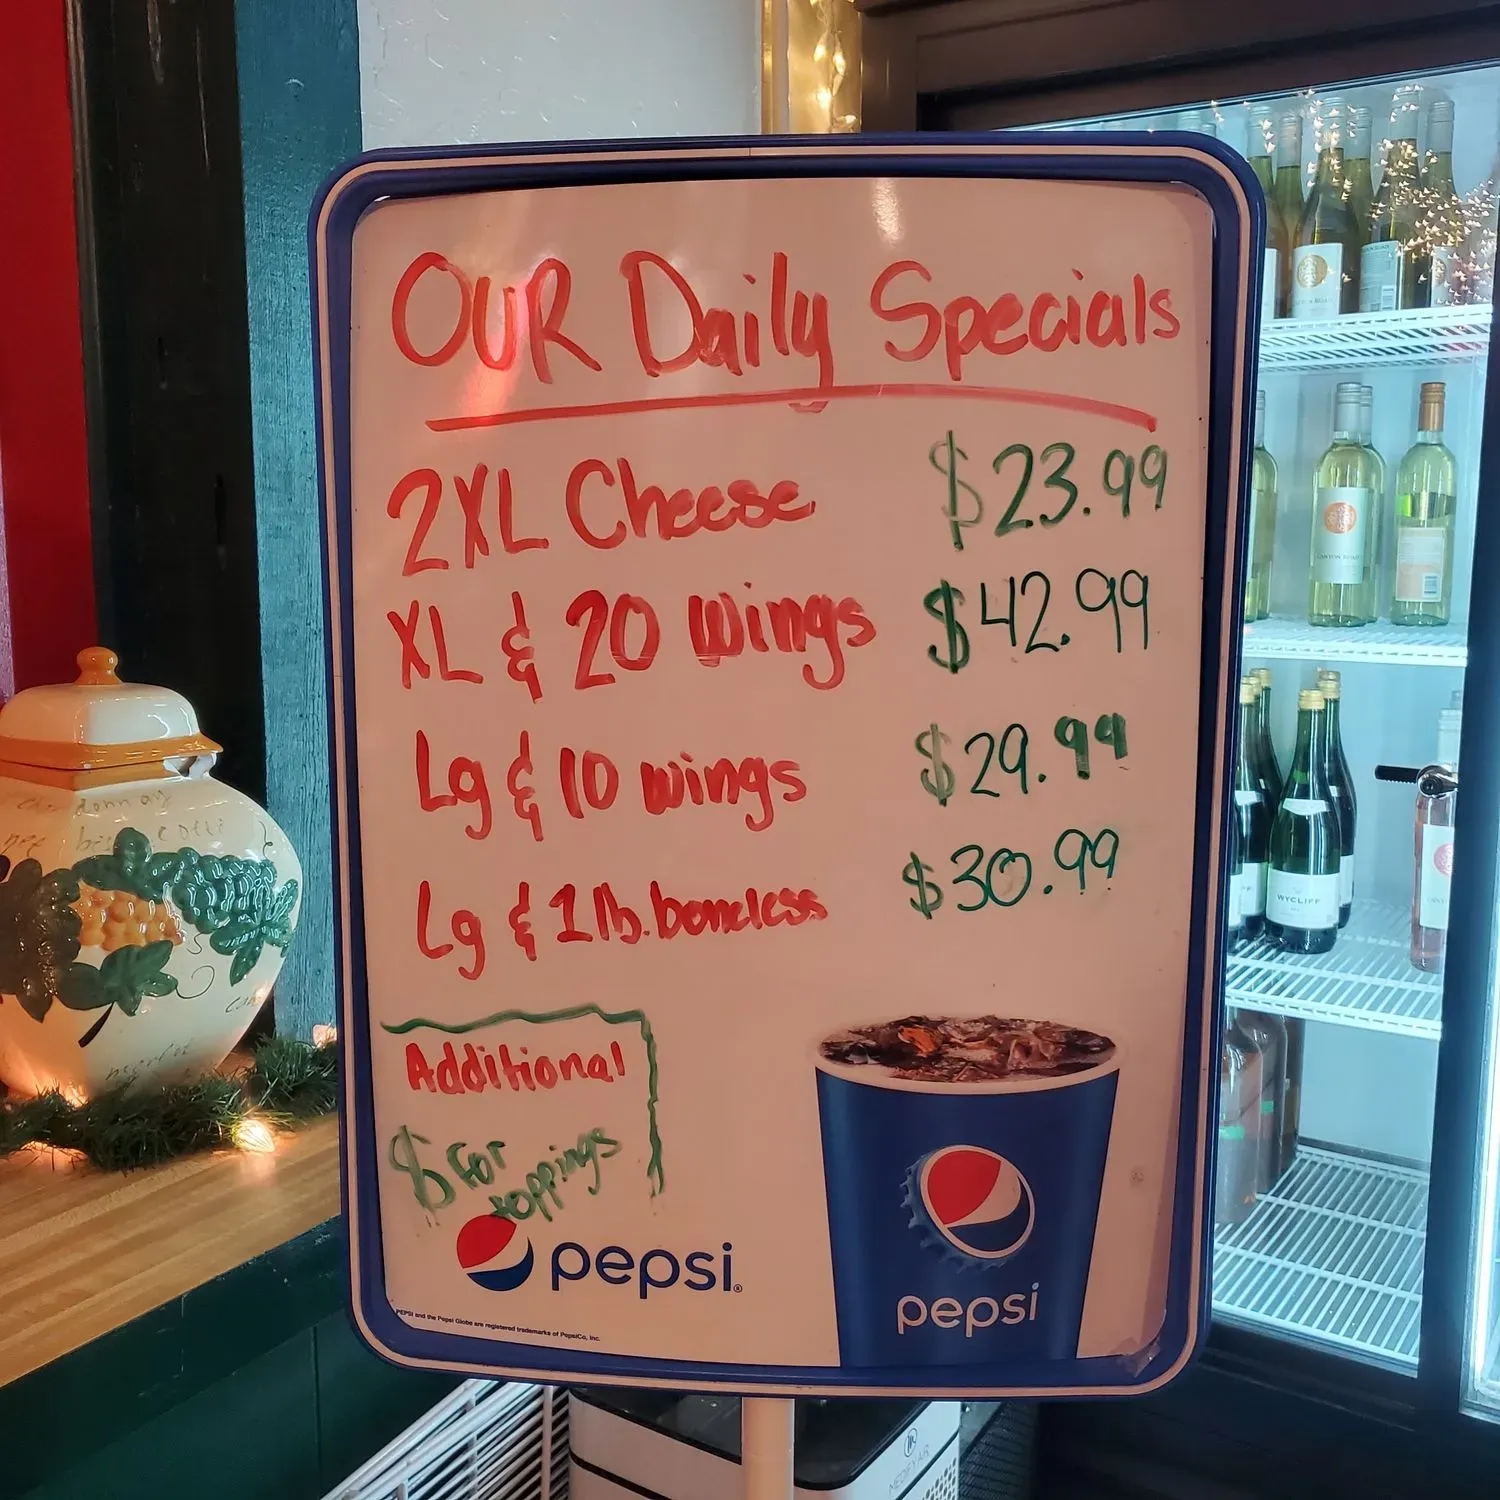 OUR Daily Specials
2XL Cheese $23.99
XL & 20 wings $42.99
Lg & 10 wings $29.99
Lg & 1 lb. boneless $30.99
Additional
$ For
toppings
pepsi®
PEPSI and the Pepsi Globe are registered trademarks of PepsiCo, Inc.
pepsi
WYCLIFF
MEDIFY AIR